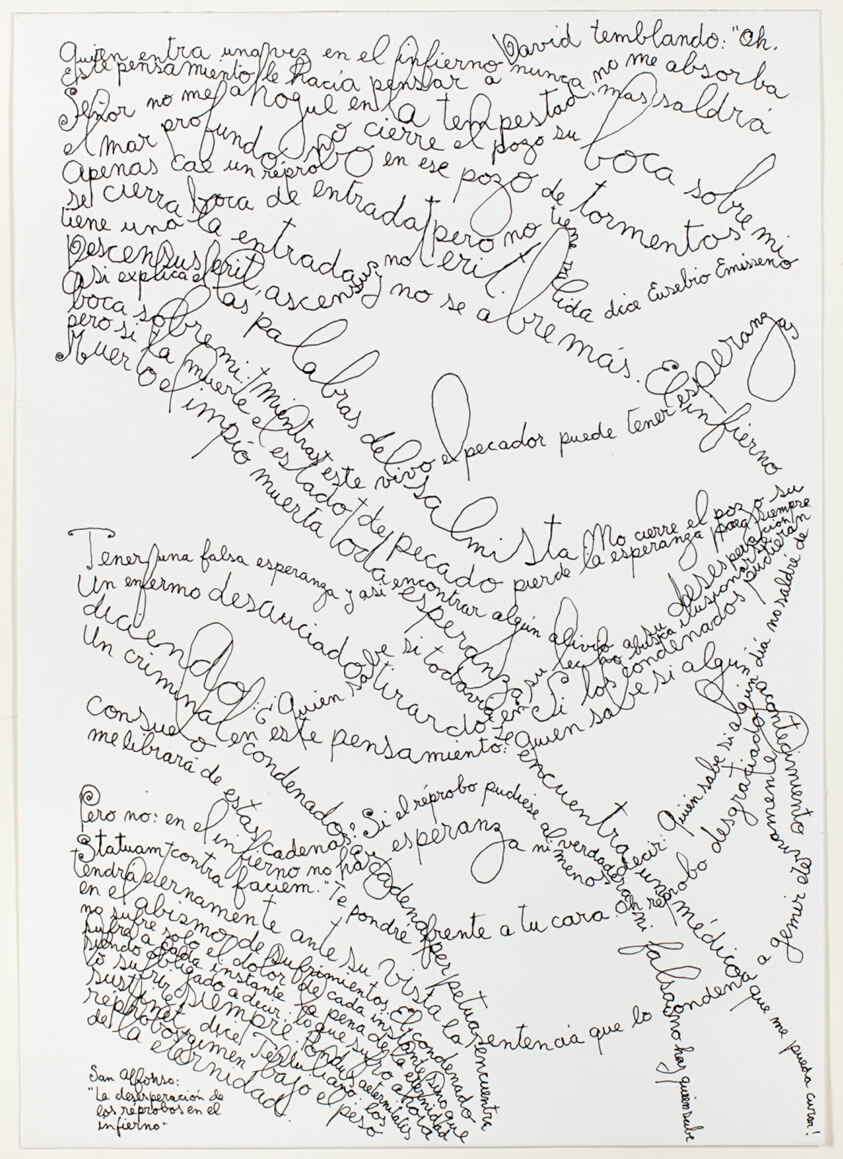 Quien entra una vez en el infierno nunca mas saldrá
Este pensamiento le hacía pensar a David temblando: "Oh,
Señor no me ahogue en la tempestad, no me absorba
el mar profundo, no cierre el pozo su boca sobre mi
Apenas cae un réprobo en ese pozo de tormentos
se cierra boca de entrada y no se abre más. El infierno
tiene una la entrada pero no tiene salida dice Eusebio Emisseno
Descensus erit, ascensus non erit.
Asi explica el las palabras del salmista: No cierre el pozo su
boca sobre mi: mientras este vivo el pecador puede tener esperanzas
pero si la muerte el estado de pecado pierde la esperanza para siempre
Muerto el impio muerta toda esperanza. Si los condenados pudieran
Tener una falsa esperanza y asi encontrar algún alivio a su desesperación
Un enfermo desauciado tirado en su lecho busca ilusionarse
diciendo: ¿Quien sabe si todavía se encuentra un médico que me pueda curar!
Un criminal condenado a cadena perpetua encuentra
consuelo en este pensamiento: ¿Quien sabe si algun acontecimiento
me librará de estas cadenas? Si el réprobo pudiese al decir: Quien sabe si algún día no saldré de
Pero no: en el infierno no hay esperanza ni verdadera ni falsa no hay quien sabe
Statuam contra faciem." Te pondré frente a tu cara. Oh réprobo desgraciado
tendrá eternamente ante su vista la sentencia que lo condena a gemir eternamente
en el abismo de sufrimientos. El condenado
no sufre solo el dolor de cada instante sino que
sufre a cada instante la pena de la eternidad
siendo obligado a decir: lo que sufro ahora
lo sufriré siempre. Pondus aeternitatis
sustinet dice Tertuliano: los
réprobos gimen bajo el peso
de la eternidad.
San Alfonso:
"La desesperación de
los réprobos en el
infierno"